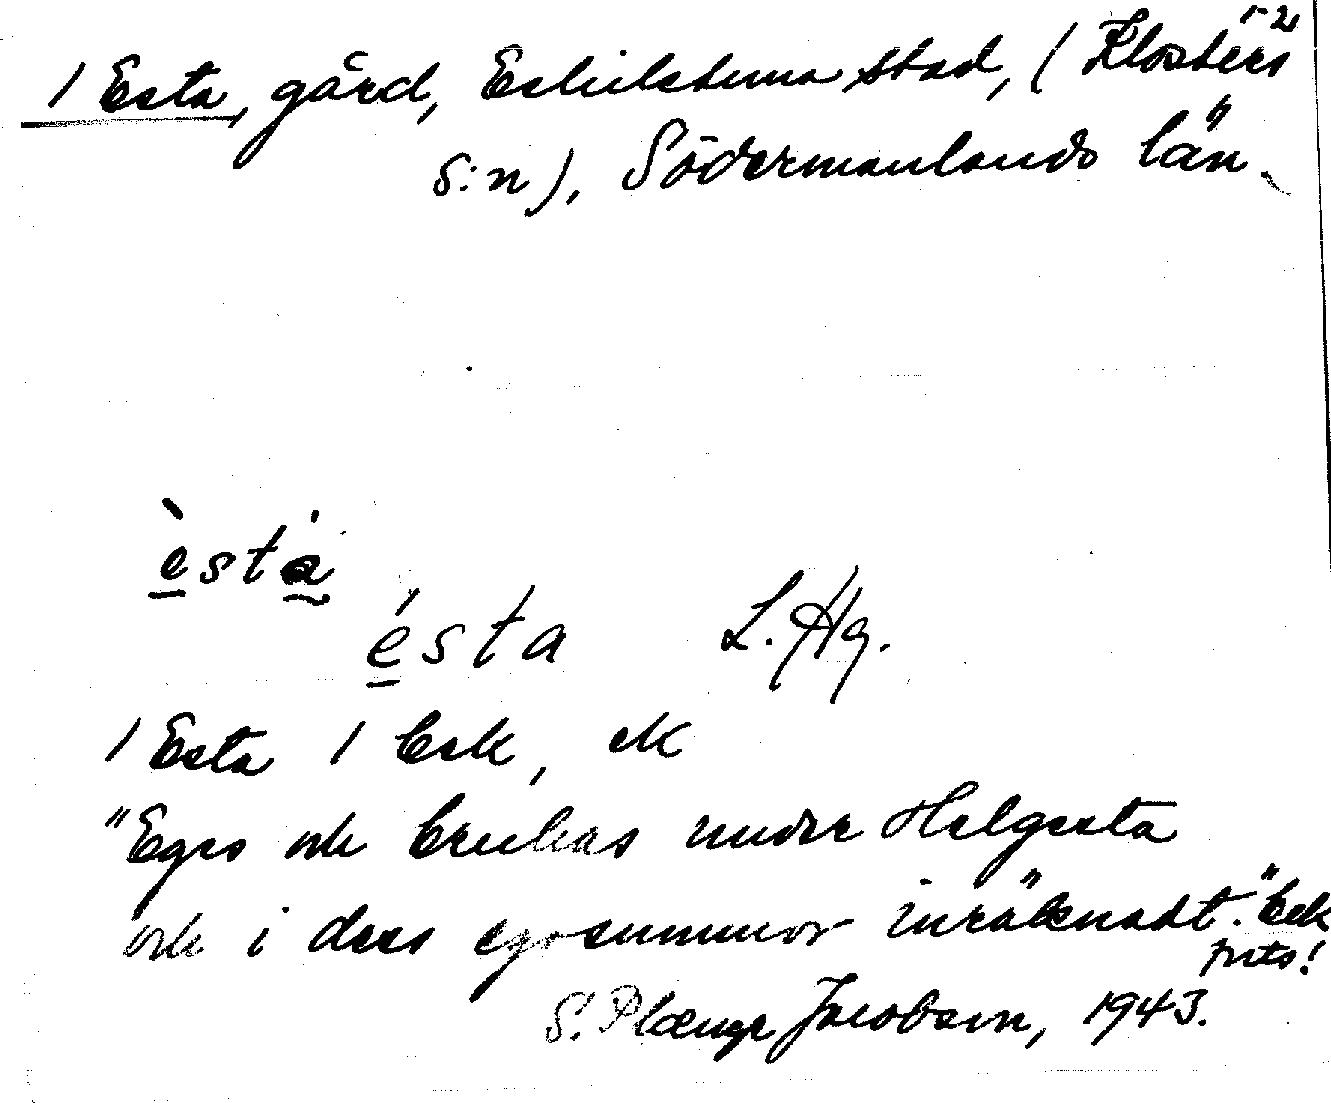 1 Esta, gård, Eskilstuna stad, (Klosters
1-2
s:n), Södermanlands län.
èsta
ésta L. Hg.
1 Esta 1 bek, ek
"Eges och brukas under Helgesta
och i dess egosummor inräknadt." bek
prts!
S. Plænge Jacobson, 1943.